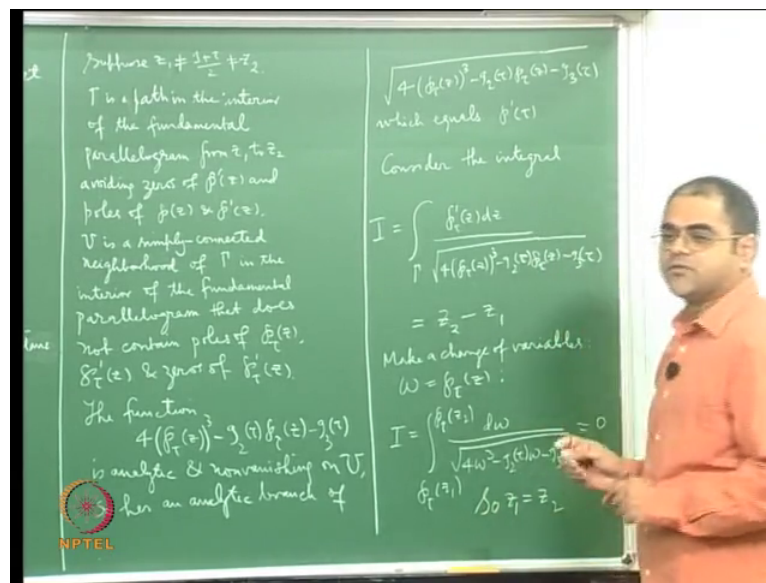 et
tions
Suppose z₁ ≠ (1+τ)/2 ≠ z₂.
Γ is a path in the interior
of the fundamental
parallelogram from z₁ to z₂
avoiding zeros of ℘'(z) and
poles of ℘(z) & ℘'(z).
U is a simply-connected
neighborhood of Γ in the
interior of the fundamental
parallelogram that does
not contain poles of ℘_τ(z),
℘'_τ(z) & zeros of ℘'_τ(z).
The function
4(℘_τ(z))³ - g₂(τ)℘_τ(z) - g₃(τ)
is analytic & nonvanishing on U,
so has an analytic branch of
√(4(℘_τ(z))³ - g₂(τ)℘_τ(z) - g₃(τ))
which equals ℘'(τ)
Consider the integral
I = ∫_Γ ℘'_τ(z)dz / √(4(℘_τ(z))³ - g₂(τ)℘_τ(z) - g₃(τ))
= z₂ - z₁
Make a change of variables:
ω = ℘_τ(z):
I = ∫_{℘_τ(z₁)}^{℘_τ(z₂)} dω / √(4ω³ - g₂(τ)ω - g₃ = 0
So z₁ = z₂
NPTEL